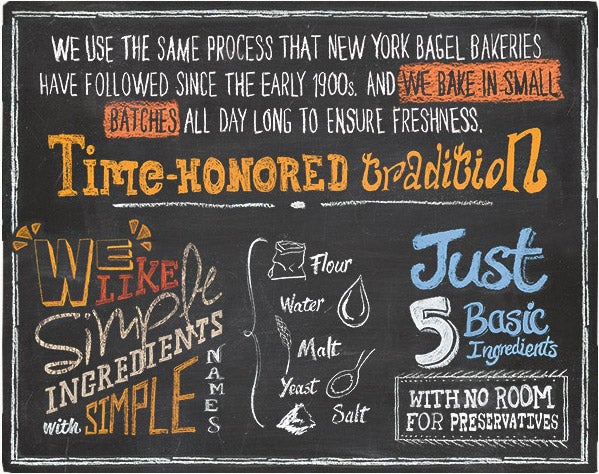 WE USE THE SAME PROCESS THAT NEW YORK BAGEL BAKERIES
HAVE FOLLOWED SINCE THE EARLY 1900s. AND WE BAKE IN SMALL
BATCHES ALL DAY LONG TO ENSURE FRESHNESS.
Time-HONORED tradition
"WE"
LIKE
Simple
INGREDIENTS
with SIMPLE
NAMES
Flour
Water
Malt
Yeast
Salt
Just
5 Basic
Ingredients
WITH NO ROOM
FOR PRESERVATIVES